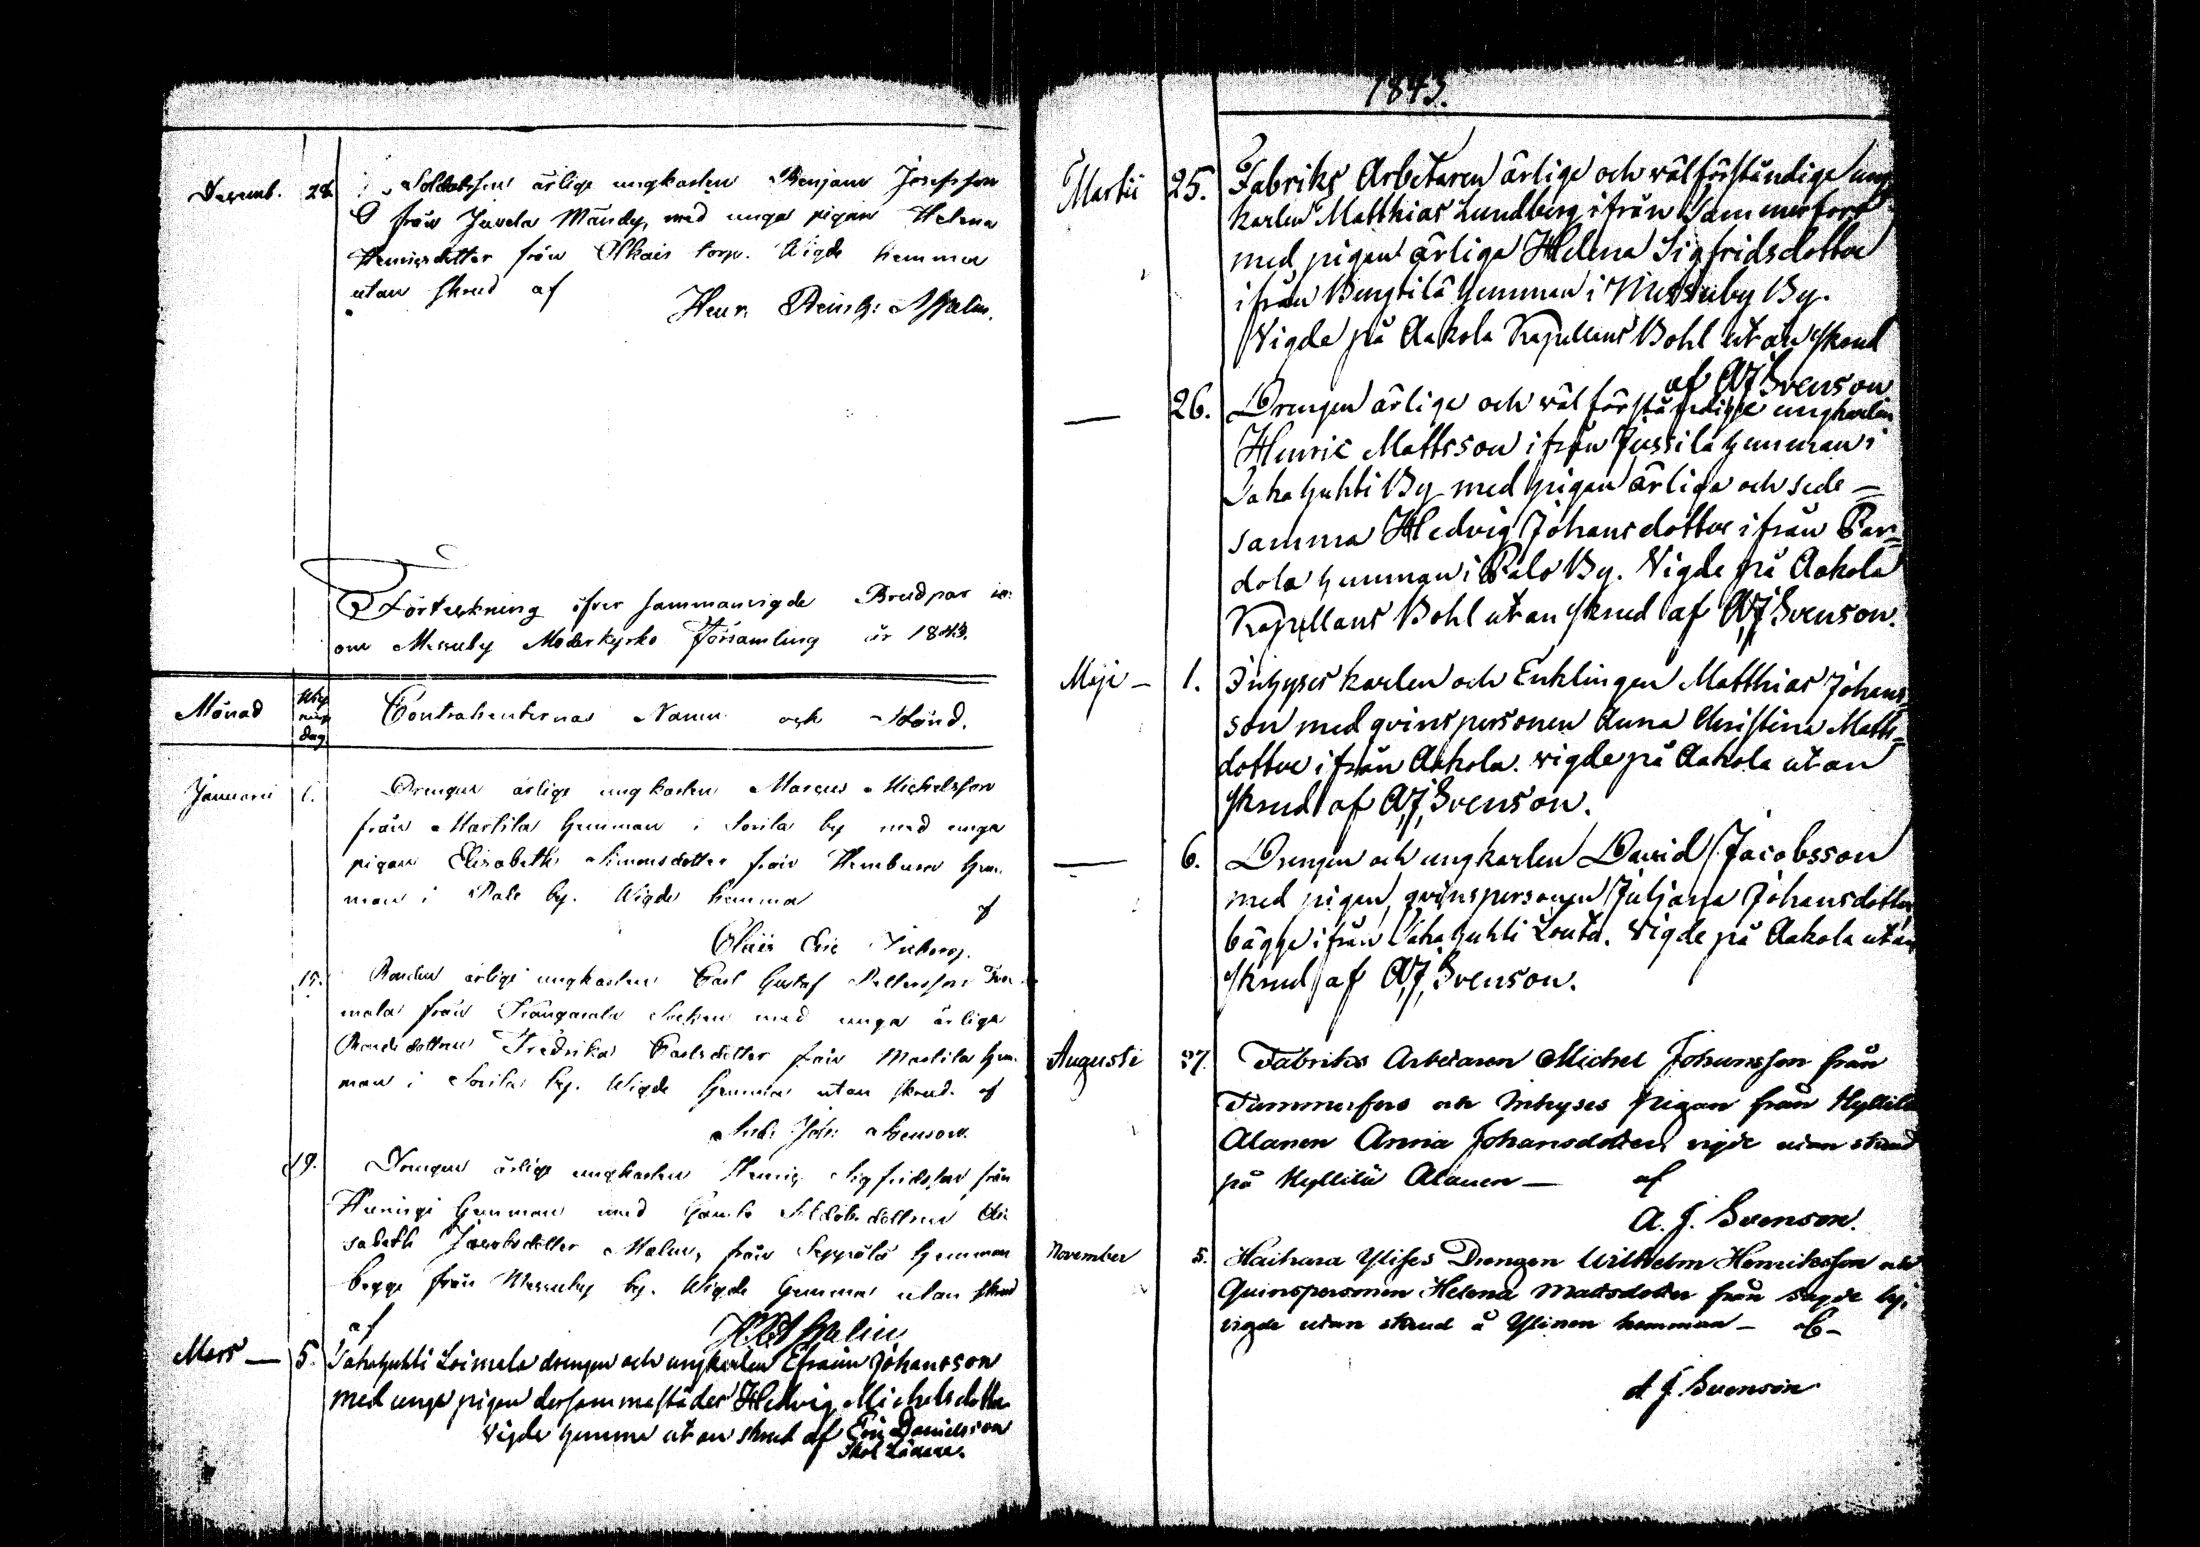 Decemb. 28. Soldatssonen ärlige ungkarlen Benjam Josefsson
från Juvela Mändy, med unga pigan Helena
Henricsdotter från Akais torp. Wigde hemma
utan skrud af
Henr. Heinr: Malm.
Förteckning öfver sammanvigde Brudpar in-
om Messuby Moderkyrko Församling år 1843.
Månad Wig nings dag Contrahenternas Namn och Stånd.
Januari 6. Drengen ärlige ungkarlen Marcus Michelsson
från Martila Hemman i Sorila by med unga
pigan Elisabeth Simonsdotter från Hem
man i Palo by. Wigde hemma af
Claës Eric
15. Bonden ärlige ungkarlen Carl Gustaf Pettersson
mala från Kangasala Sochen med unga ärliga
Bondedottren Fredrika Carlsdotter från Martila Hem-
man i Sorila by. Wigde hemma utan skrud. af
And: Joh: Svenson.
19. Drengen ärlige ungkarlen Henric Sigfridsson från
Heiniye Hemman med Gamle Soldats dottren Eli
sabeth Jacobsdotter Malm, från Seppälä Hemman
begge från Messuby by. Wigde hemma utan skrud
af Malin
Mars — 5. Takahuhti Loimala drengen och ungkarlen Efraim Johansson
med unga pigan dersammastädes Hedvig Michelsdotter
Vigde hemma utan skrud af Eric Danielsson
Skol Lärare.
1843.
Martii 25. Fabriks Arbetaren ärlige och välförståndige ung
karlen Matthias Lundberg ifrån Tammerfors
med pigan ärliga Helena Sigfridsdotter
ifrån Bengtilä hemman i Messuby By.
Vigde på Aakola Kapellans Bohl utan skrud
af A J Svenson.
— 26. Drengen ärlige och välförståndige ungkarlen
Henric Mattsson ifrån Jussila hemman i
Takahuhti By med pigan ärliga och sede-
samma Hedvig Johansdotter ifrån Par-
dola hemman i Palo By. Vigde på Aakola
Kapellans Bohl utan skrud af A,J, Svenson.
Maji — 1. Inhyses karlen och Enklingen Matthias Johans-
son med qvinspersonen Anna Christina Matts-
dotter ifrån Aakola. vigde på Aakola utan
skrud af A,J, Svenson.
— 6. Drengen och ungkarlen David Jacobsson
med pigan, qvinspersonen Juljana Johansdotter
bägge ifrån Takahuhti Louta. Vigde på Aakola utan
skrud af A,J, Svenson.
Augusti 27. Fabriks Arbetaren Michel Johansson från
Tammerfors och Inhyses Pigan från Hyllilä
Alanen Anna Johansdotter, vigde utan skrud
på Hyllilä Alanen — af
A. J. Svenson.
November 5. Haihara Ylises Drengen Wilhelm Henriksson och
Quinspersonen Helena Matsdotter från sagde by,
vigde utan skrud å Ylinen hemman — af —
A J. Svenson